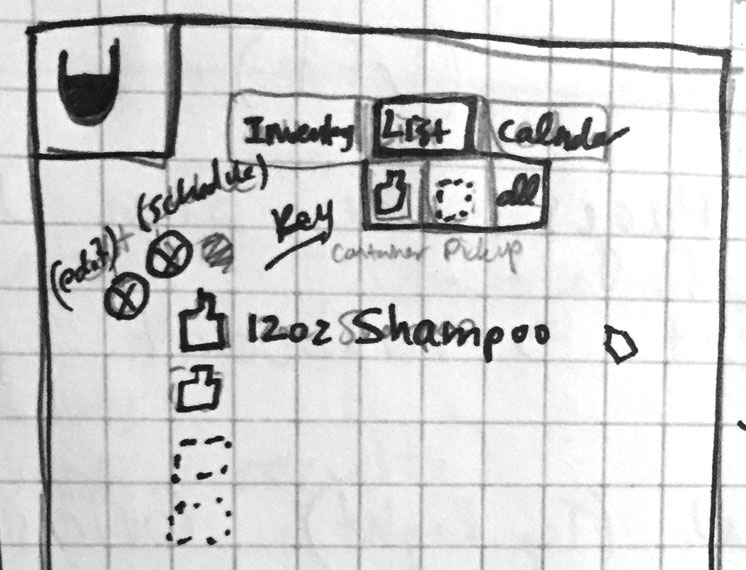 Inventory List Calnder
(schedule)
all
Key
(edit)
Container Pickup
12oz Shampoo